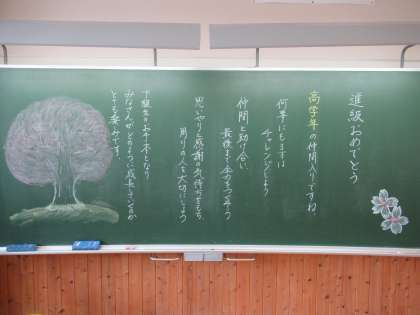 進級おめでとう
高学年の仲間入りですね。
何事にもまずは
チャレンジしよう
仲間と助け合い、
最後まで
思いやりと感謝の気持ちをもち、
周りの人を大切にしよう
下級生のお手本となり
みなさんがどのように成長していくのか
とても楽しみです。